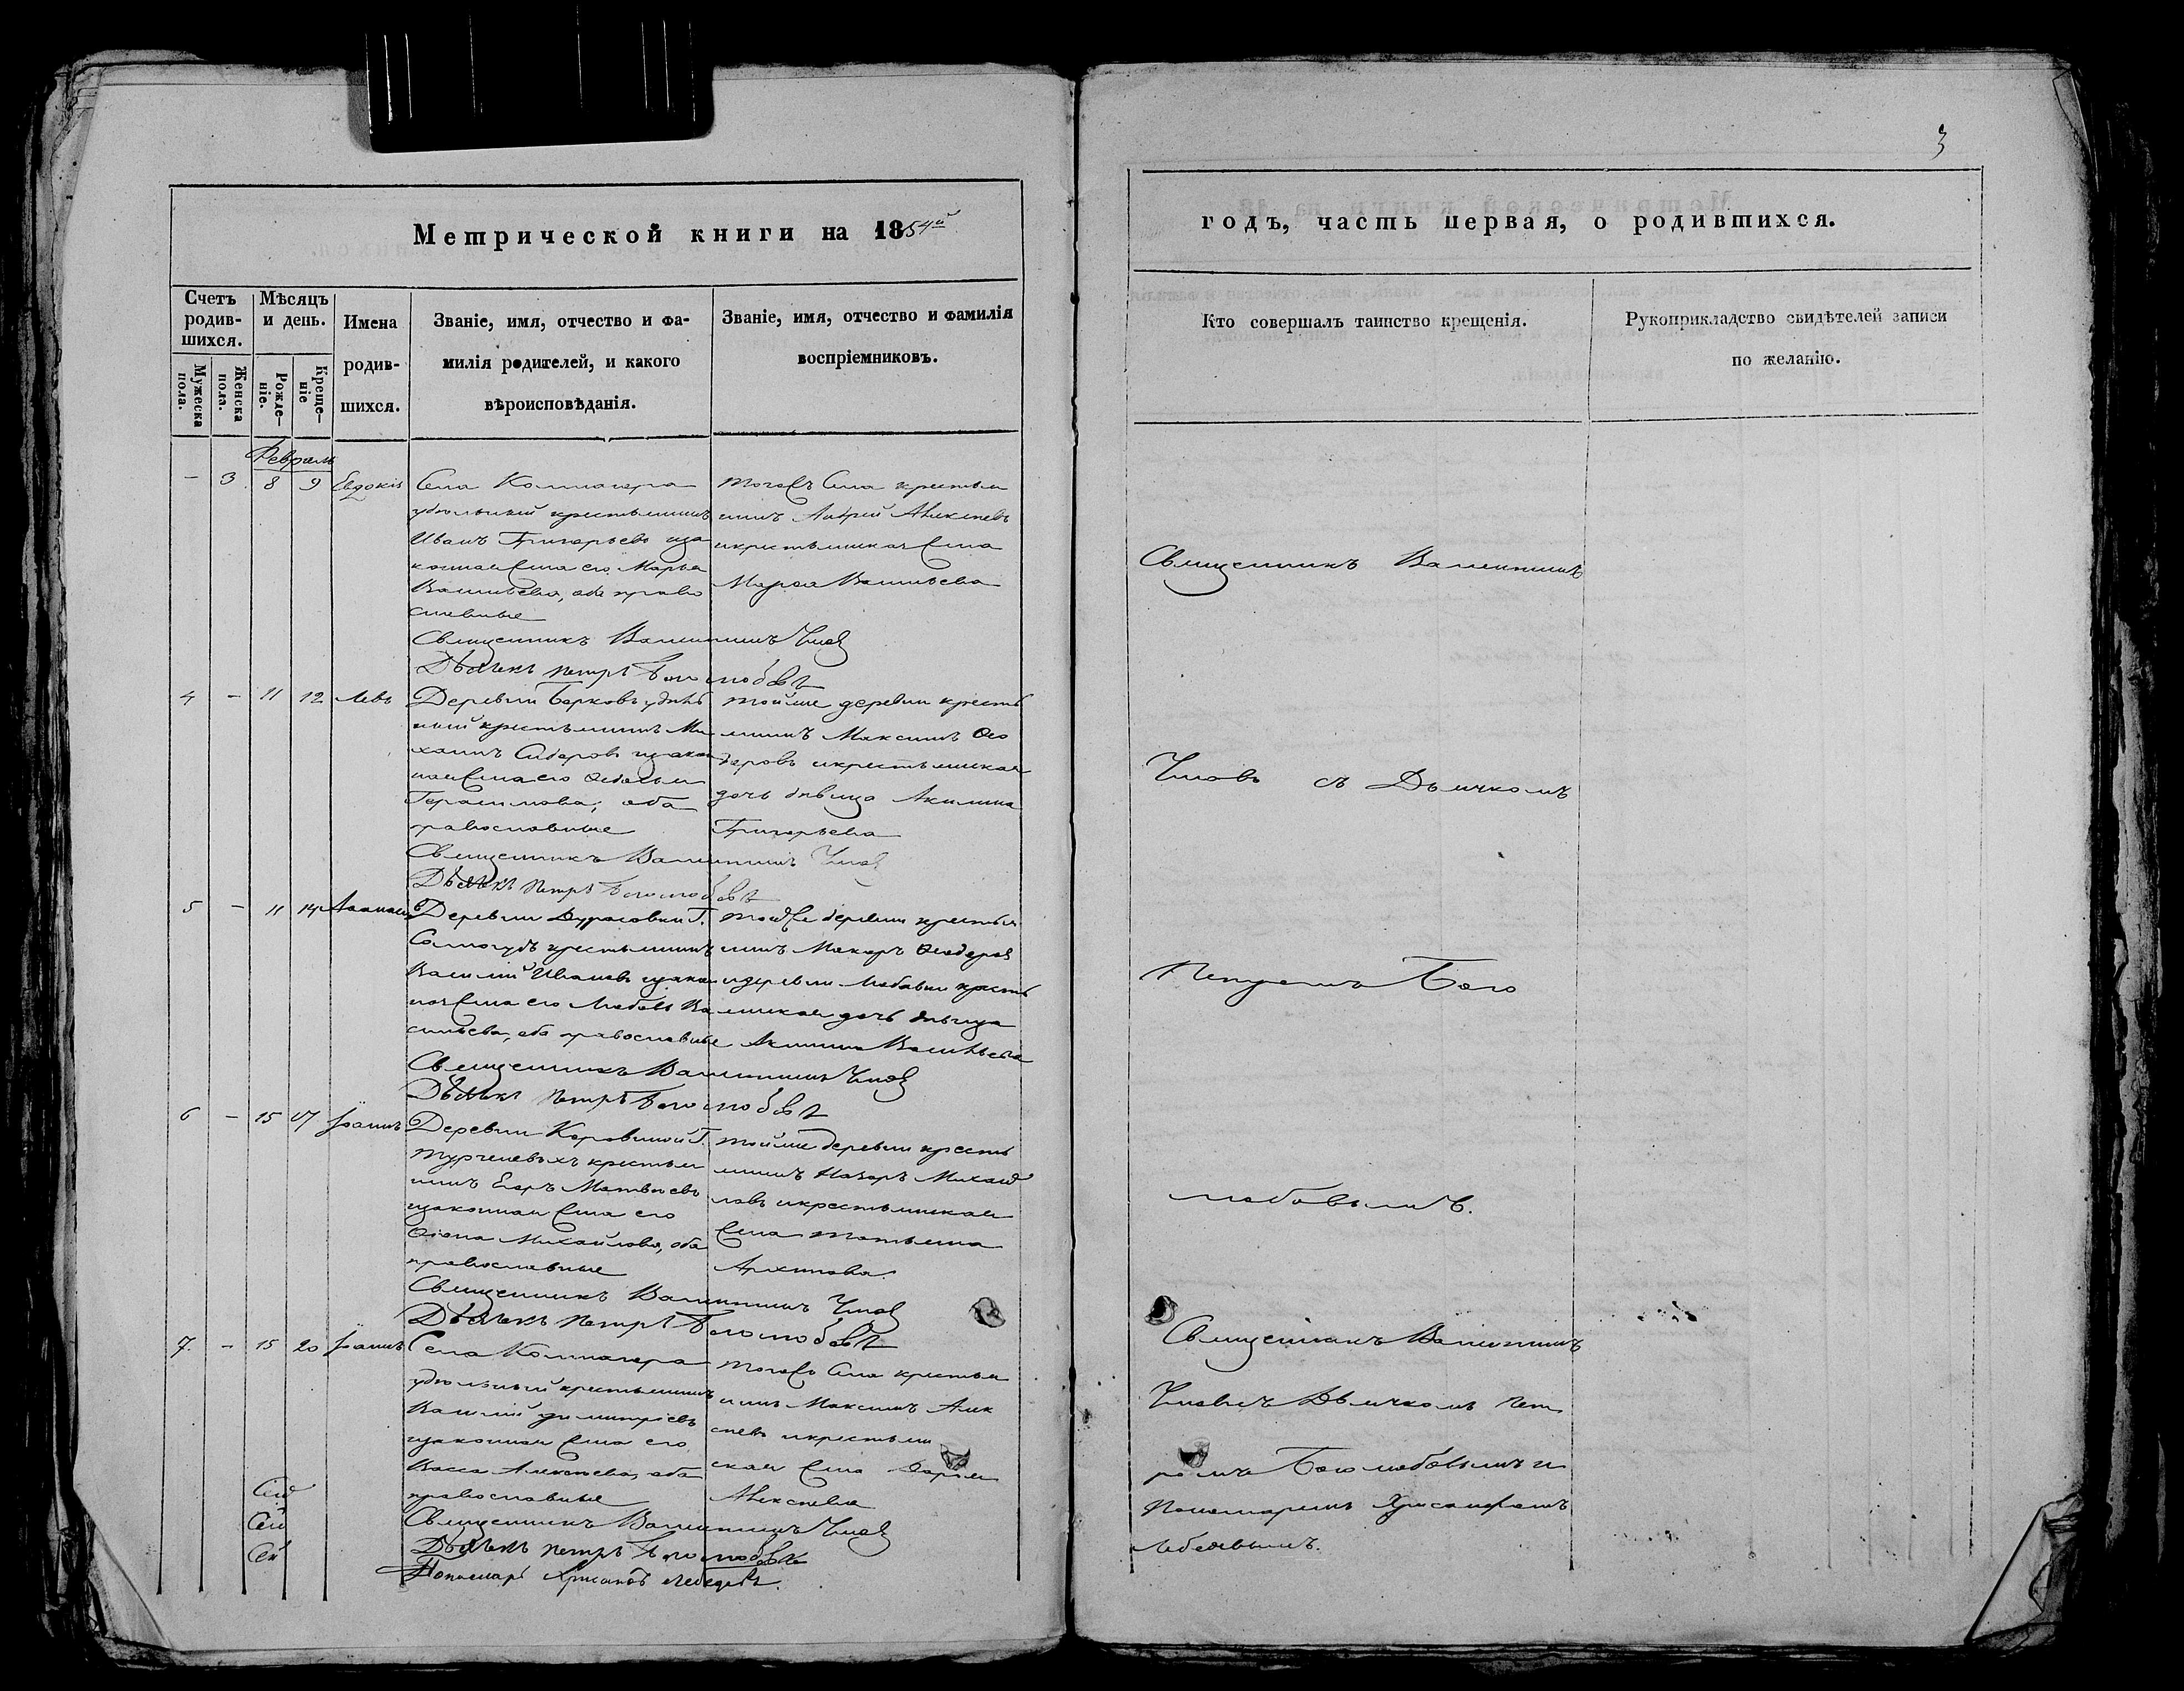 3
Метрической книги на 1854й
годъ, часть первая, о родившихся.
Счетъ родив-шихся.
Мужеска пола.
Женска пола.
Мѣсяцъ и день.
Рожде-ніе.
Креще-ніе
Имена родив-шихся.
Званіе, имя, отчество и фа-
милія родителей, и какого
вѣроисповѣданія.
Званіе, имя, отчество и фамилія
воспріемниковъ.
Кто совершалъ таинство крещенія.
Рукоприкладство свидѣтелей записи
по желанію.
Февраль
- 3 8 9 Евдокія
Села
удѣльный крестьянинъ
Иванъ Григорьевъ иза
конная жена его Марья
Васильева, оба право
славные
тогожъ села крестья
нинъ Андрей Алексѣевъ
икрестьянская жена
Марѳа Васильева
Священникъ Валентинъ
Дьячекъ Петръ Боголюбовъ
4 - 11 12 Левъ
Деревни удѣль
ный крестьянинъ Ми
хаилъ Сидоровъ изакон
ная жена его
Герасимова, оба
православные
тойже деревни кресть
янинъ Максимъ Ѳео
доровъ икрестьянская
дочь дѣвица Акилина
Григорьева
Священникъ Валентинъ
Дьячекъ Петръ Боголюбовъ
5 - 11 14 Аѳанасій
Деревни Дурасовки Г.
крестьянинъ
Василій Ивановъ изакон
ная жена его Любовь Ва
сильева, оба православные
тойже деревни крестья
нинъ Макаръ Ѳеодоровъ
идеревни кресть
янская дочь дѣвица
Васильева
Священникъ Валентинъ
Дьячекъ Петръ Боголюбовъ
6 - 15 17 Іоаннъ
Деревни Коровиной Г.
Тургеневыхъ крестья
нинъ Егоръ Матвѣевъ
изаконная жена его
Михайлова, оба
православные
тойже деревни кресть
янинъ Назаръ Михай
ловъ икрестьянская
жена Татьяна
Архипова.
Священникъ Валентинъ
Дьячекъ Петръ Боголюбовъ
7. - 15 20 Іоаннъ
Села
удѣльный крестьянинъ
Василій Димитріевъ
изаконная жена его
Васса Алексѣева, оба
православные
тогожъ села крестья
нинъ Максимъ Алек
сѣевъ икрестьян
ская жена Дарья
Алексѣева
Священникъ Валентинъ
Дьячекъ Петръ Боголюбовъ
Пономарь Хрисанѳъ Лебедевъ.
Священникъ Валентинъ
съ Дьячкомъ
Петромъ Бого
любовымъ.
Священникъ Валентинъ
Дьячкомъ Пет
ромъ Боголюбовымъ и
Пономаремъ Хрисанфомъ
Лебедевымъ.